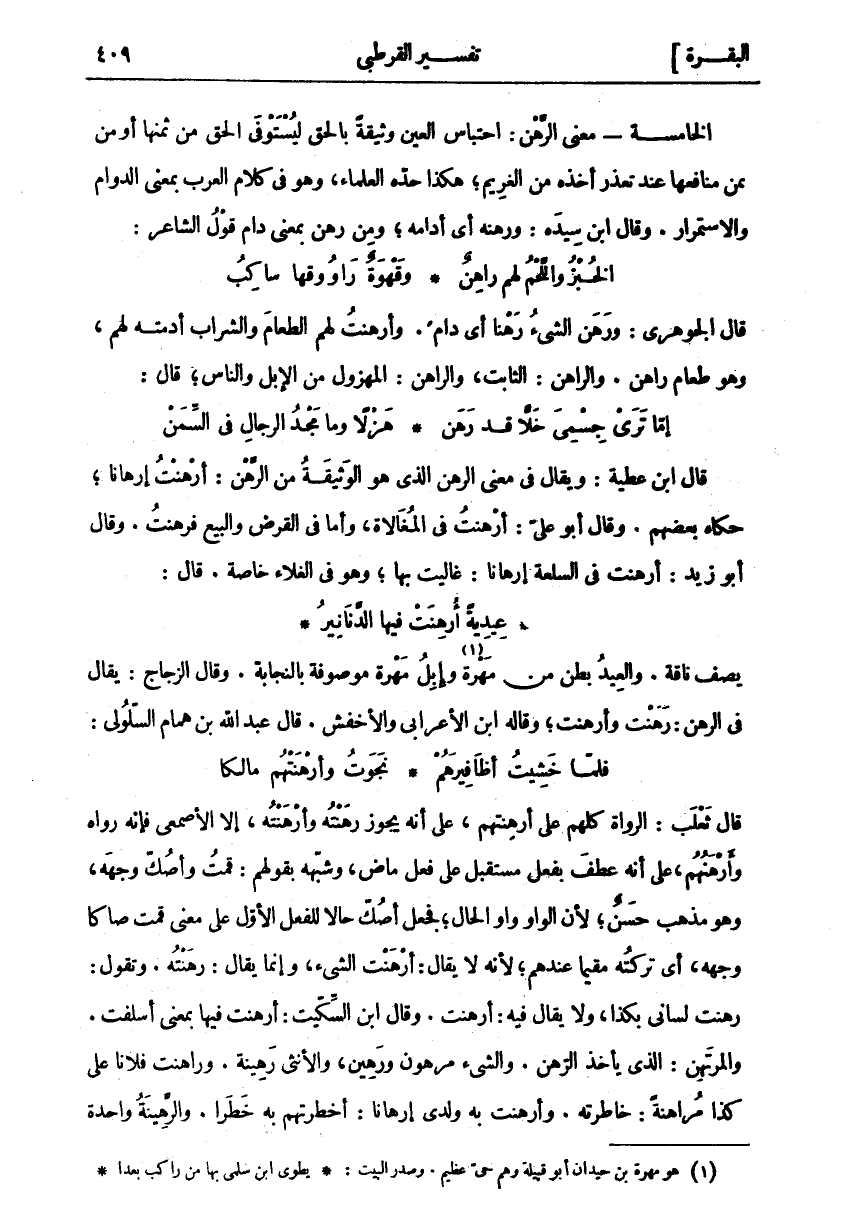 البقرة ] تفسير القرطبي ٤٠٩
الخامسة — معنى الرَّهْن : احتباس العين وثيقةً بالحق ليُسْتَوْفَى الحق من ثمنها أو من
من منافعها عند تعذر أخذه من الغريم؛ هكذا حدّه العلماء، وهو فى كلام العرب بمعنى الدوام
والاستمرار . وقال ابن سِيدَه : ورهنه أى أدامه ؛ ومِن رهن بمعنى دام قوْلُ الشاعر :
الخُبْزُ واللَّحْمُ لهم راهِنٌ * وقَهْوَةٌ رَاوُوقها ساكِبُ
قال الجوهرى : ورَهَن الشىءُ رَهْنا أى دام . وأرهنتُ لهم الطعامَ والشراب أدمته لهم ،
وهو طعام راهن . والراهن : الثابت، والراهن : المهزول من الإبل والناس؛ قال :
إمّا تَرَىْ جِسْمِىَ خَلًّا قد رَهَن * هَزْلًا وما مَجْدُ الرجالِ فى السِّمَنْ
قال ابن عطية : ويقال فى معنى الرهن الذى هو الوَثيقَةُ من الرَّهْن : أرْهَنْتُ إرهانا ؛
حكاه بعضهم . وقال أبو علىّ : أرْهنتُ فى المُغَالاة، وأما فى القرض والبيع فرهنتُ . وقال
أبو زيد : أرهنت فى السلعة إرهانا : غاليت بها ؛ وهو فى الغلاء خاصة . قال :
* عِيدِيةً أُرهِنَتْ فيها الدَّنَانِيرُ *
يصف ناقة . والعِيدُ بطن من مَهْرَة (١) وإبلُ مَهْرة موصوفة بالنجابة . وقال الزجاج : يقال
فى الرهن : رَهَنْت وأرهنت؛ وقاله ابن الأعرابى والأخفش . قال عبد الله بن همام السَّلُولى :
فلمّا خَشِيتُ أظَافِيرَهُمْ * نَجَوتُ وأرْهَنْتُهُم مالكا
قال ثَعْلَب : الرواة كلهم على أرهنتهم ، على أنه يجوز رهَنْتُه وأرْهَنْتُه ، إلا الأصمعى فإنه رواه
وأَرْهَنُهُم، على أنه عطفَ بفعل مستقبل على فعل ماض، وشبّهه بقولهم : قمتُ وأصُكّ وجهَه،
وهو مذهب حَسَنٌ؛ لأن الواو واو الحال؛ فجعل أصُكّ حالا للفعل الأوّل على معنى قمت صاكا
وجهه، أى تركتُه مقيما عندهم؛ لأنه لا يقال : أرْهَنْت الشىء، وإنما يقال : رهَنْتُه . وتقول :
رهنت لسانى بكذا، ولا يقال فيه : أرهنت . وقال ابن السِّكّيت : أرهنت فيها بمعنى أسلفت .
والمرتَهِن : الذى يأخذ الرّهن . والشىء مرهون ورَهِين، والأنثى رَهِينة . وراهنت فلانا على
كذا مُراهنةً : خاطرته . وأرهنت به ولدى إرهانا : أخطرتهم به خَطَرا . والرَّهِينَةُ واحدة
(١) هو مهرة بن حيدان أبو قبيلة وهم حىّ عظيم . وصدر البيت : * يطوى ابن سلمى بها من راكب بعدا *